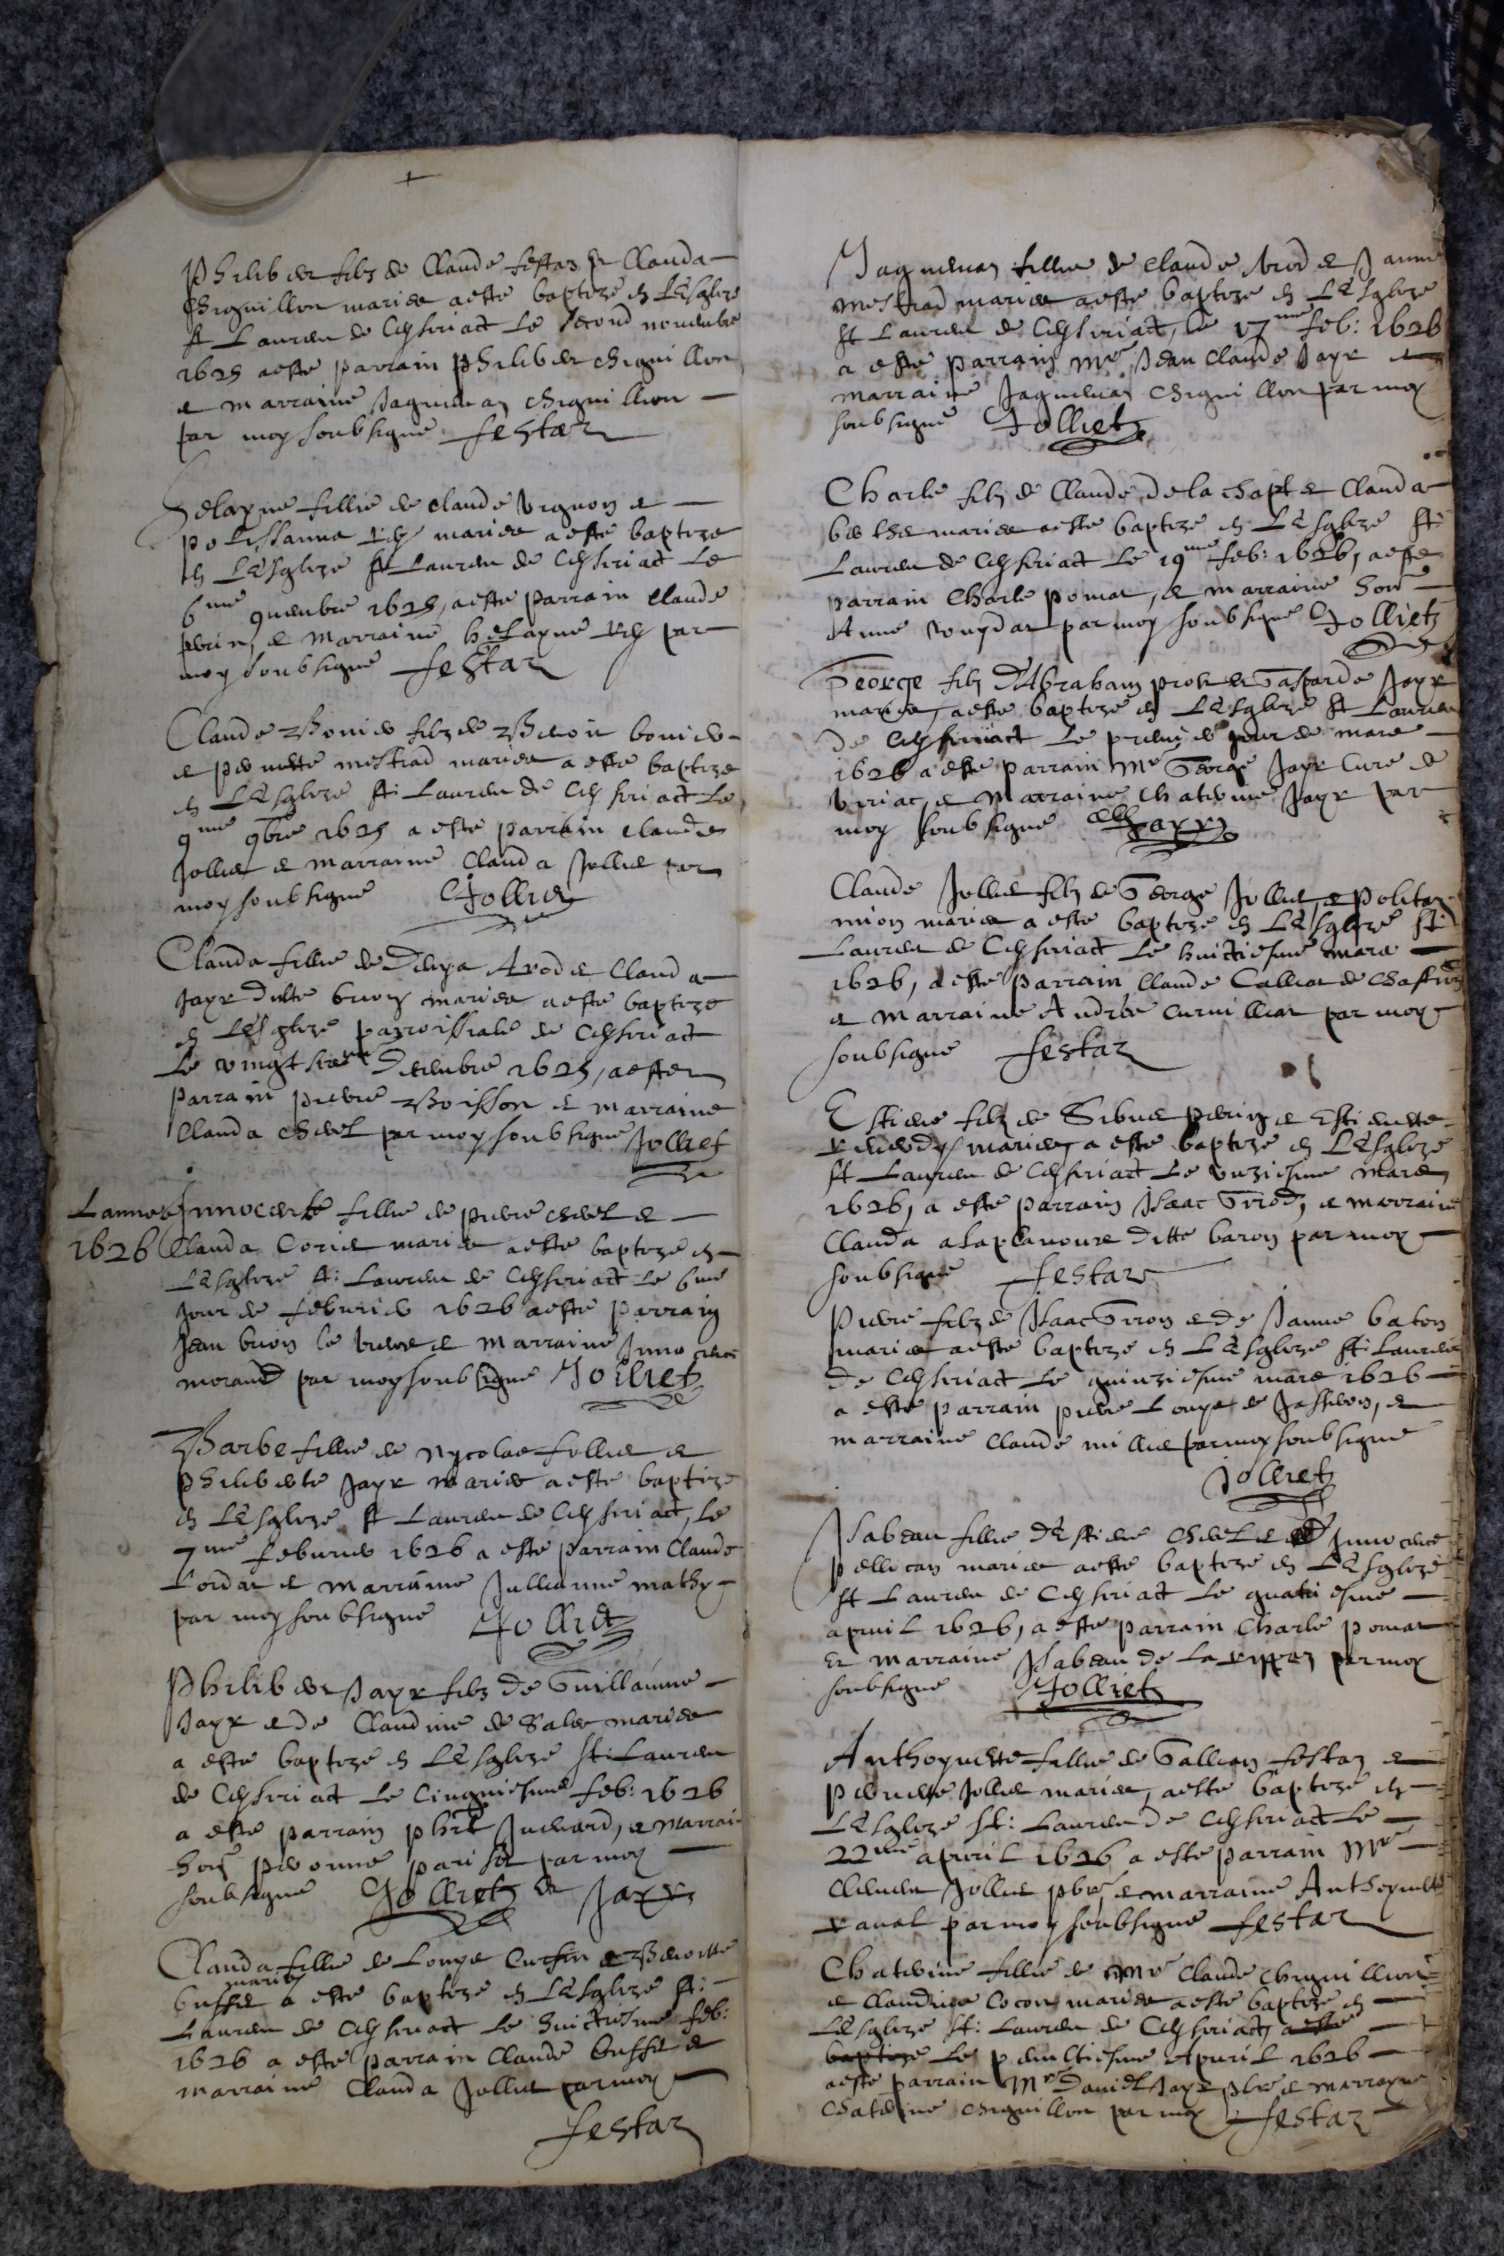 Philiber filz de Claude festaz et Clauda
Chiguillon mariez a esté baptizé en L'Esglize
St Lauren de Ceyseriact le second novembre
1625 a esté parrain Philiber Chiguillon
et marraine Jaquemaz Chiguillion
par moy soubsigné Festaz
Helayne fillie de Claude vignon et
mariez a esté baptizee
en L'Esglize St Lauren de Ceyseriact Le
6me 9vembre 1625, a esté parrain Claude
perrin et marraine helayne par
moy soubsigné Festaz
Claude Bonier filz de Benoit bonier
et pernette mestrad mariez a esté baptizé
en L'Esglize St: Lauren de Ceyseriact Le
9me 9bre 1625 a esté parrain Claude
Jolliet et marraine Clauda Jolliet par
moy soubsigné Jolliet
Clauda fillie de et Clauda
Jayr ditte mariez a esté baptizé
en L'Esglize parroissiale de Ceyseriact
Le vingt decembre 1625, a esté
parrain pierre Boisson et marraine
Clauda Chevel par moy soubsigné Jolliet
Lannee Innocente fillie de pierre Chevel et
1626 Clauda mariez a esté baptizé en
L'Esglize St: Lauren de Ceyseriact Le 6me
jour de febvrier 1626 a esté parrain
Jean le et marraine Innocente
morand par moy soubsigné Jolliet
Barbe fillie de Nycolas Jolliet et
philiberte Jayr mariez a esté baptizé
en L'Esglize St Lauren de Ceyseriact, Le
7me febvrier 1626 a esté parrain Claude
Lordat et marraine Jullianne mathy
par moy soubsigné Jolliet
Philiber Jayr filz de Guillaume
Jayr et de Claudine de mariez
a esté baptizé en L'Esglize St: Lauren
de Ceyseriact Le Cinquiesme feb: 1626
a esté parrain phrt Juenard, et marrai
honn. pernonne pariset par moy
soubsigné Jolliet et Jayr
Clauda fillie de Loupe et Benoitte
mariez
buffet a esté baptizé en L'Esglize St:
Lauren de Ceyseriact Le huictiesme feb:
1626 a esté parrain Claude buffet et
marraine Clauda Jolliet par moy
Festaz
Jaquemaz fillie de Claude et Janne
mestrad mariez a esté baptizé en L'Esglize
St Lauren de Ceyseriact, le 17me feb: 1626
a esté parrain Mre Jean Claude Jayr et
marraine Jaquemaz Chiguillon par moy
soubsigné Jolliet
Charle filz de Claude De la chapt et Clauda
mariez a esté baptizé en L'Esglize St
Lauren de Ceyseriact Le 19me feb: 1626, a esté
parrain Charle pomat, et marraine hon
Anne par moy soubsigné Jolliet
George filz D'Abraham et Gasparde Jayr
mariez, a esté baptizé en L'Esglize St Lauren
de Ceyseriact Le premier jour de mars
1626 a esté parrain Mre George Jayr Curé de
viriac, et marraine Chaterine Jayr par
moy soubsigné Jayr
Claude Jolliet filz de George Jolliet et Politaz
mion mariez a esté baptizé en L'Esglize St
Lauren de Ceyseriact Le huictiesme mars
1626, a esté parrain Claude Calliat de
et marraine Andrée Curnilliat par moy
soubsigné Festaz
Estiene filz de Sibuet perrin et Estienette
mariez a esté baptizé en L'Esglize
St Lauren de Ceyseriact Le unziesme mars
1626, a esté parrain Isaac, et marraine
Clauda a ditte baron par moy
soubsigné Festaz
Pierre filz de Isaac et de Janne baton
mariez a esté baptizé en L'Esglize St: Lauren
de Ceyseriact Le quinziesme mars 1626
a esté parrain pierre Loupe de Jasseron, et
marraine Claude milliet par moy soubsigné
Jolliet
Isabeau fillie D'Estiene Chevel et Innocente
pellican mariez a esté baptizé en L'Esglize
St Lauren de Ceyseriact Le quatriesme
apvril 1626, a esté parrain Charle pomat
Et marraine Isabeau de La par moy
soubsigné Jolliet
Anthoynette fillie de Gallian festaz et
pernette Jolliet mariez, a esté baptizé en
L'Esglize St: Lauren de Ceyseriact Le
22me apvril 1626 a esté parrain Mre
Clemen Jolliet pbre et marraine Anthoynette
ravat par moy soubsigné Festaz
Chaterine fillie de Mre Claude Chiguillion
et Claudine Cocon mariez a esté baptizé en
L'Esglize St: Lauren de Ceyseriact a esté
baptizé Le penultiesme Apvril 1626
a esté parrain Mre Daniel Jayr pbre et marrayne
Chaterine Chiguillon par moy Festaz